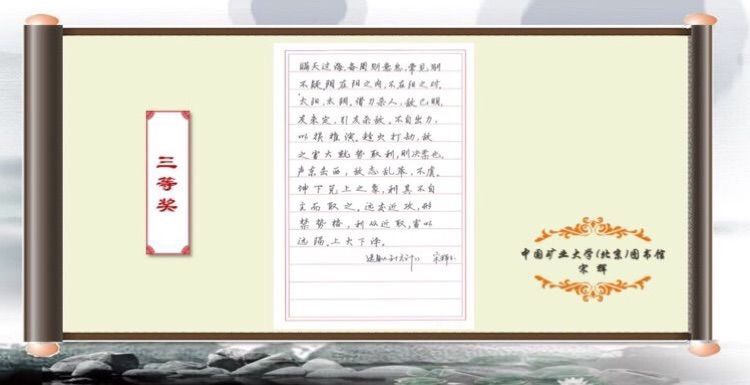 三等奖
瞒天过海,备周则意怠,常见,则
不疑,阴在阳之内,不在阳之对,
太阳,太阴。借刀杀人,敌已明,
友未定,引友杀敌。不自出力,
以损推演。趁火打劫,敌
之害大就势取利,刚决柔也。
声东击西,敌志乱萃,不虞。
坤下兑上之象,利其不自
主而取之。远交近攻,形
禁势格,利从近取,害以
远隔。上火下泽。
宋辉
中国矿业大学(北京)图书馆
宋辉